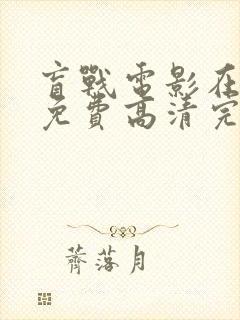 盲戰電影在
免費高清完
薺落月